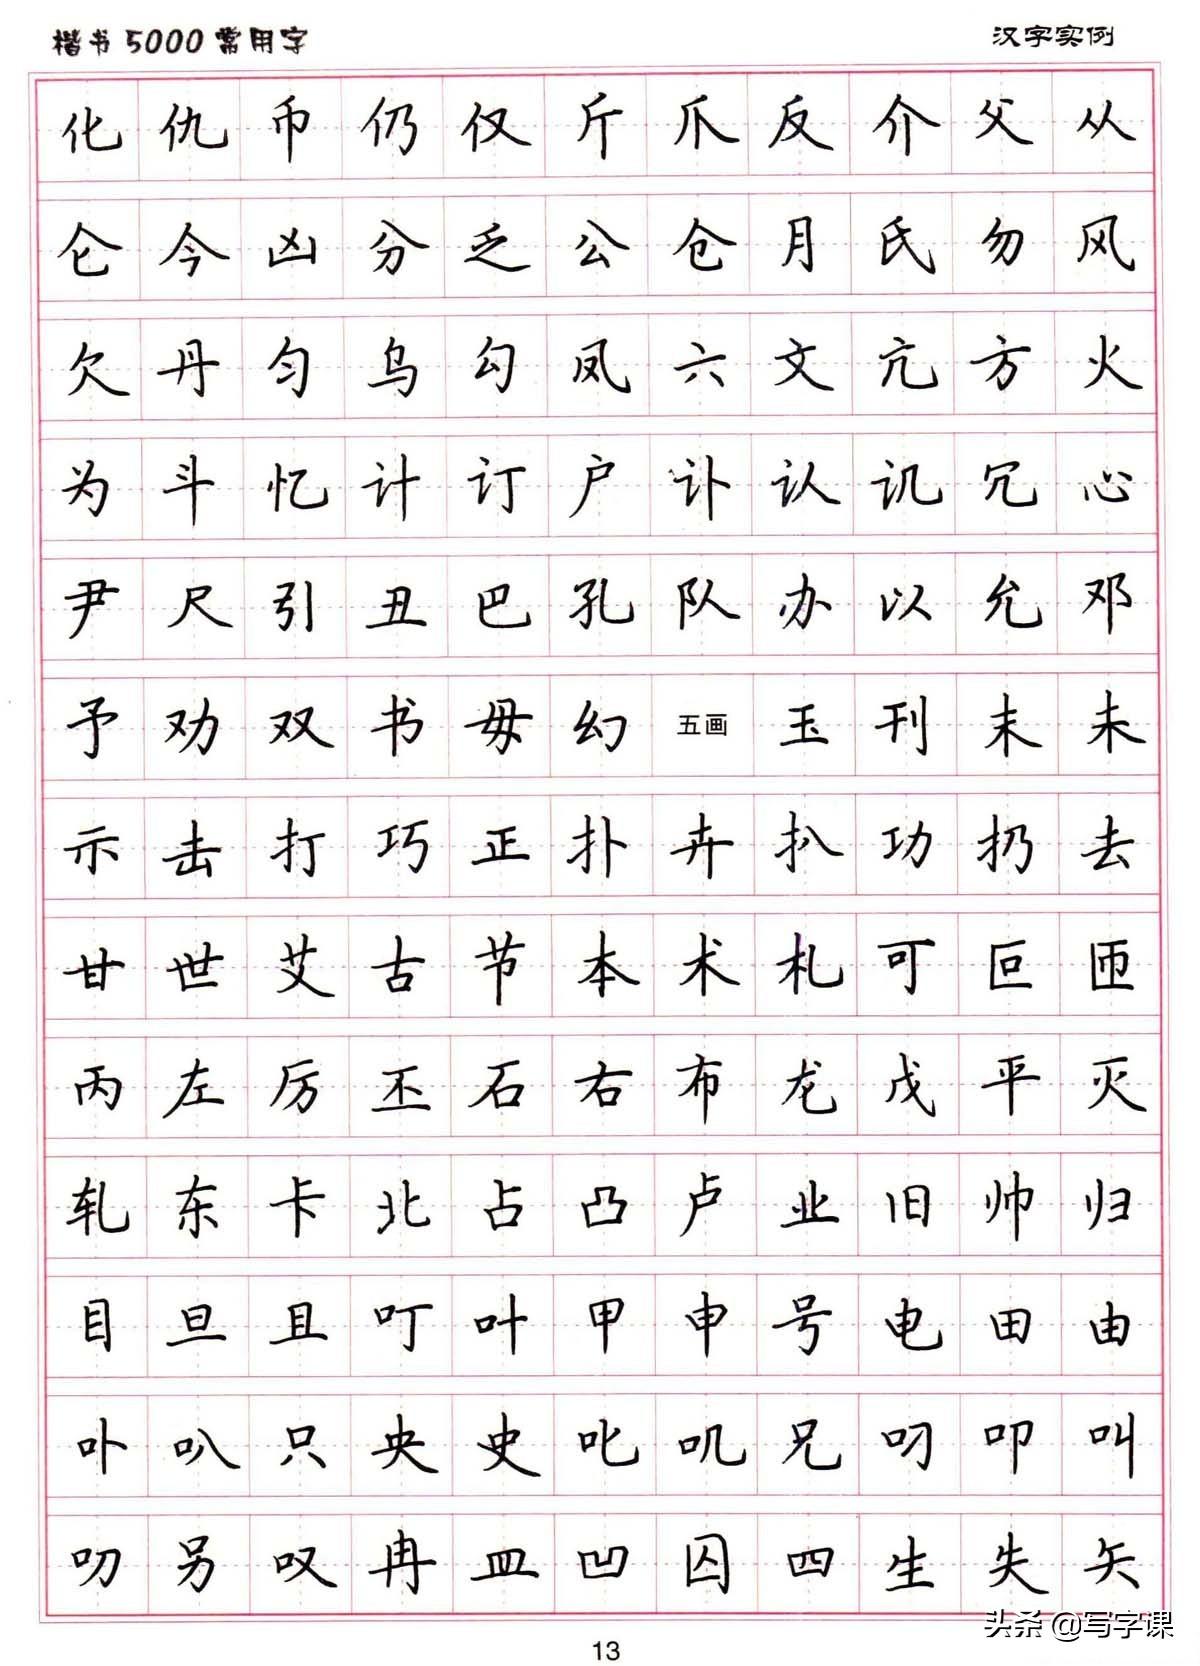 楷书5000常用字 汉字实例
化仇币仍仅斤爪反介父从
仑今凶分乏公仓月氏勿风
欠丹匀乌勾凤六文亢方火
为斗忆计订户讣认讥冗心
尹尺引丑巴孔队办以允邓
予劝双书毋幻五画玉刊末未
示击打巧正扑卉扒功扔去
甘世艾古节本术札可叵匝
丙左厉丕石右布龙戊平灭
轧东卡北占凸卢业旧帅归
目旦且叮叶甲申号电田由
卟叭只央史叱叽兄叼叩叫
叻另叹冉皿凹囚四生失矢
头条@写字课
13